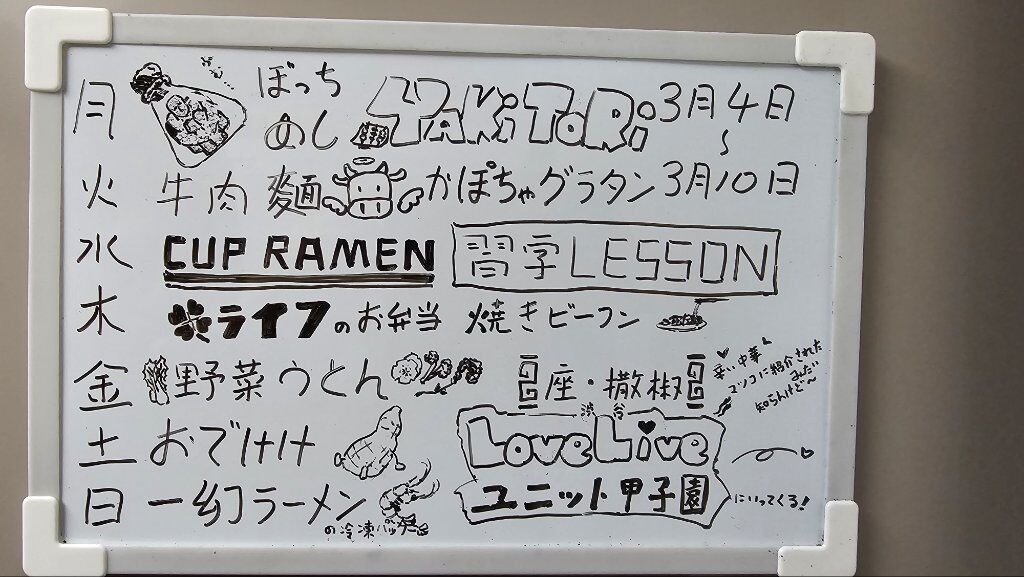 月 ぼっち
めし YAKiToRi 3月4日
〜
火 牛肉 麺 かぼちゃグラタン 3月10日
水 CUP RAMEN 習字LESSON
木 ライフのお弁当 焼きビーフン
金 野菜うとん 座・撒椒
辛い中華
マツコに紹介された
みたい
知らんけど〜
土 おでけけ 渋谷
LoveLive
日 一幻ラーメン ユニット甲子園 にいってくる!
の冷凍パック